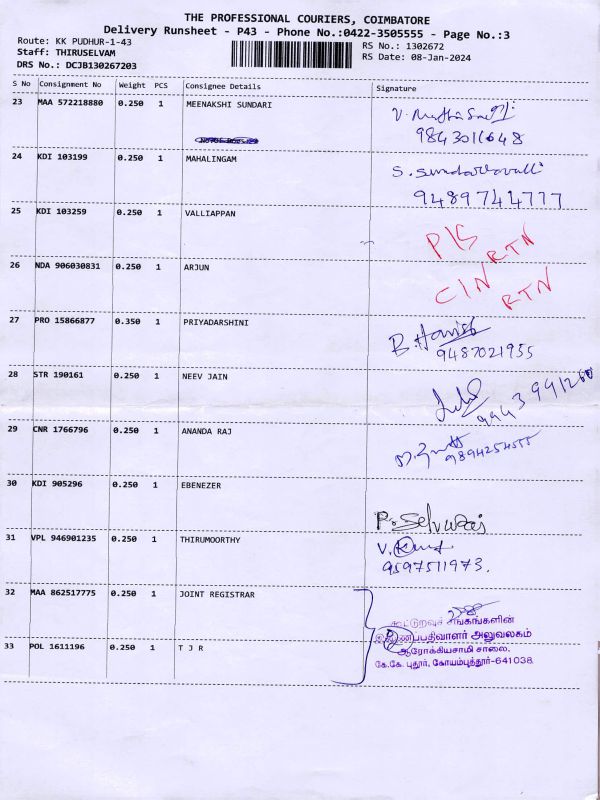 THE PROFESSIONAL COURIERS, COIMBATORE
Delivery Runsheet - P43 - Phone No.:0422-3505555 - Page No.:3
Route: KK PUDHUR-1-43
RS No.: 1302672
Staff: THIRUSELVAM
RS Date: 08-Jan-2024
DRS No.: DCJB130267203
S No Consignment No Weight PCS Consignee Details Signature
23 MAA 572218880 0.250 1 MEENAKSHI SUNDARI
9843011648
24 KDI 103199 0.250 1 MAHALINGAM S. Sundaravalli
9489744777
25 KDI 103259 0.250 1 VALLIAPPAN RTN
26 NDA 906030831 0.250 1 ARJUN CIN RTN
27 PRO 15866877 0.350 1 PRIYADARSHINI B. Harish
9487021955
28 STR 190161 0.250 1 NEEV JAIN
29 CNR 1766796 0.250 1 ANANDA RAJ
9894254555
30 KDI 905296 0.250 1 EBENEZER
P. Selvaraj
31 VPL 946901235 0.250 1 THIRUMOORTHY V.
9597511973.
32 MAA 862517775 0.250 1 JOINT REGISTRAR
கூட்டுறவுச் சங்கங்களின்
இணைப்பதிவாளர் அலுவலகம்
33 POL 1611196 0.250 1 T J R ஆரோக்கியசாமி சாலை,
கே.கே. புதூர், கோயம்புத்தூர்-641038.